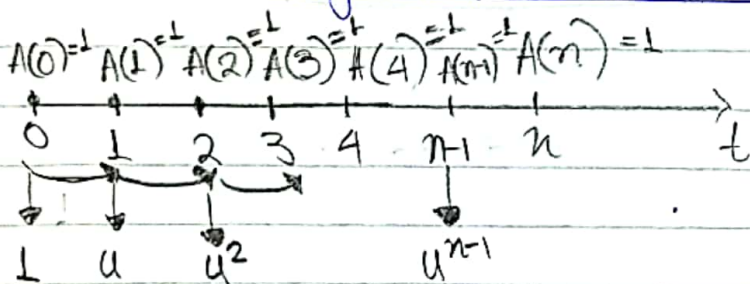 A(0)=1 A(1)=1 A(2)=1 A(3)=1 A(4)=1 A(n-1)=1 A(n)=1
0 1 2 3 4 n-1 n t
1 u u² uⁿ⁻¹